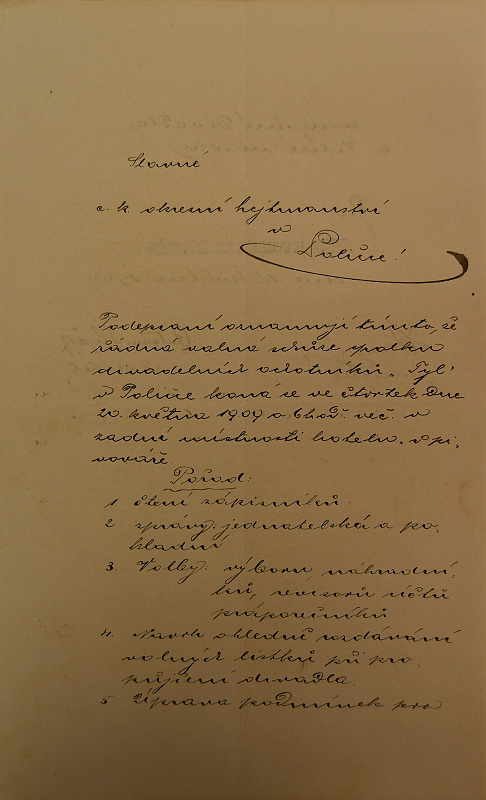 Slavné
c. k. okresní hejtmanství
v
Poličce!
Podepsaní oznamují tímto, že
řádná valná schůze spolku
divadelních ochotníků „Tyl"
v Poličce koná se ve čtvrtek dne
20. května 1909 o 8 hod. več. v
zadné místnosti hotelu „v pi-
vováře
Pořad:
1. čtení zápisníků.
2 zprávy: jednatelská a po-
kladní
3. Volby: výboru, náhradní-
ků, revisorů účtů
praporečníků
4. Návrh ohledně rozdávání
volných lístků při pro-
půjčení divadla.
5 Úprava podmínek pro